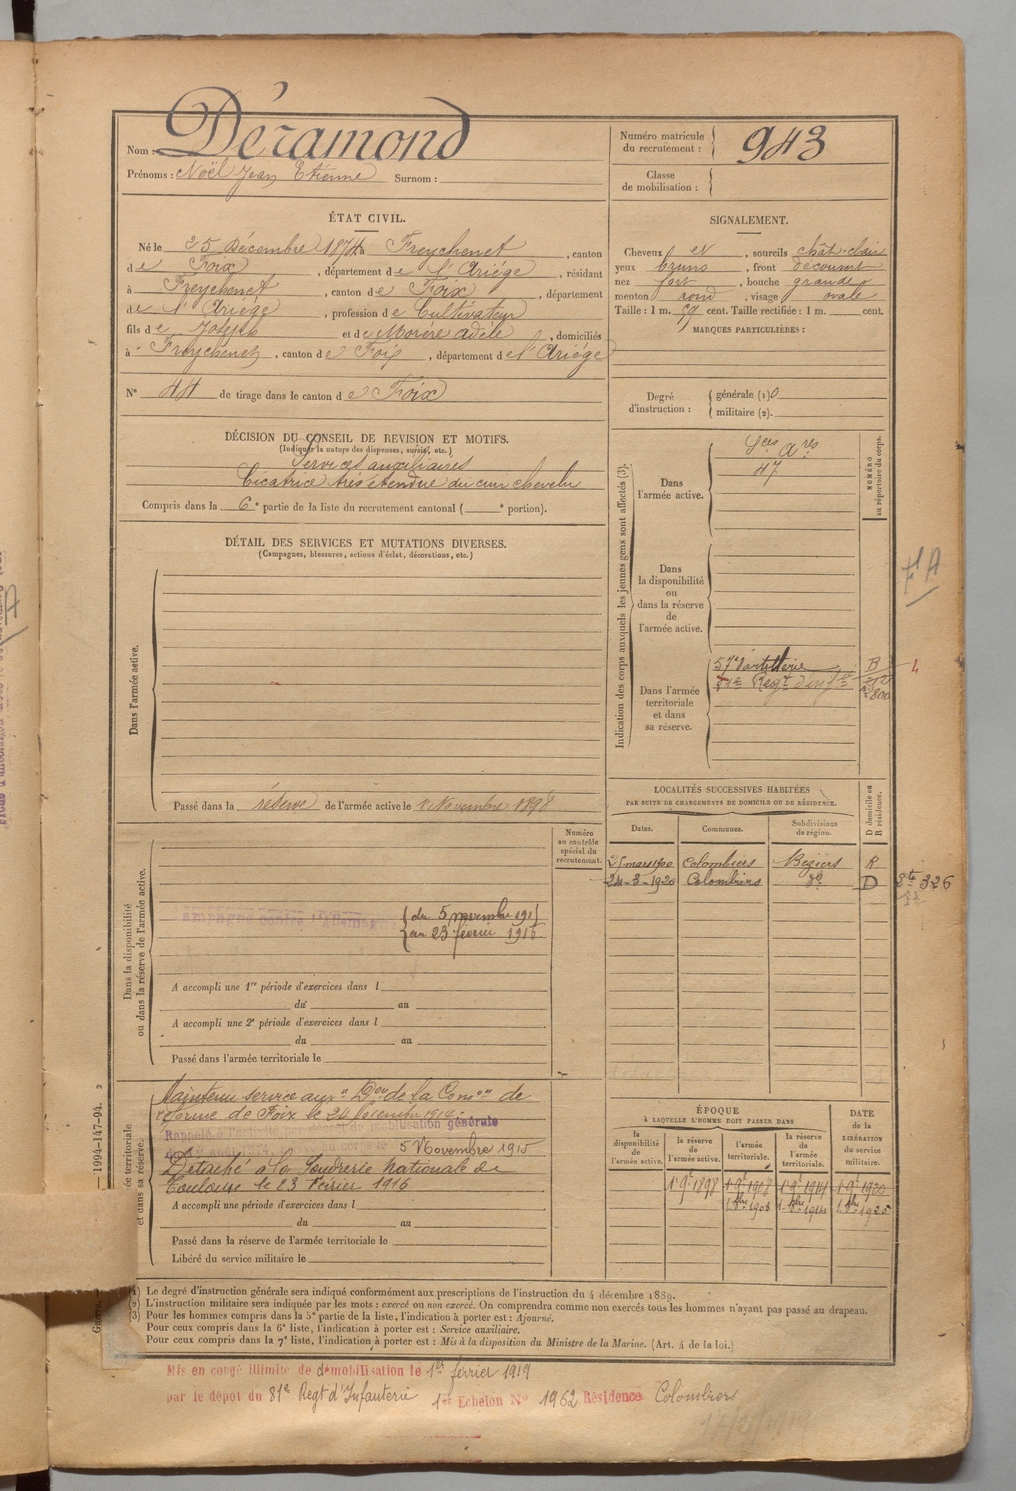 Nom : Déramond
Prénoms : Noël Jean Etienne Surnom :
Numéro matricule du recrutement : 943
Classe de mobilisation :
ÉTAT CIVIL.
Né le 25 Décembre 1874 à Freychenet, canton
de Foix, département de l'Ariége, résidant
à Freychenet, canton de Foix, département
de l'Ariége, profession de Cultivateur
fils de Joseph et de Morère Adèle, domiciliés
à Freychenet, canton de Foix, département de l'Ariége
N° 44 de tirage dans le canton de Foix
SIGNALEMENT.
Cheveux et, sourcils chât-clair
yeux bruns, front découvert
nez fort, bouche grande
menton rond, visage ovale
Taille : 1 m. cent. Taille rectifiée : 1 m. cent.
MARQUES PARTICULIÈRES :
Degré d'instruction : générale (1) 0
militaire (2).
DÉCISION DU CONSEIL DE REVISION ET MOTIFS.
(Indiquer la nature des dispenses, sursis, etc.)
Services auxiliaires
Cicatrice très étendue du cuir chevelu
Compris dans la 6e partie de la liste du recrutement cantonal ( e portion).
DÉTAIL DES SERVICES ET MUTATIONS DIVERSES.
(Campagnes, blessures, actions d'éclat, décorations, etc.)
Dans l'armée active.
Passé dans la réserve de l'armée active le 1r Novembre 1898
Indication des corps auxquels les jeunes gens sont affectés (3).
NUMÉRO au répertoire du corps.
Dans l'armée active.
Sces Ares
47
Dans la disponibilité ou dans la réserve de l'armée active.
Dans l'armée territoriale et dans sa réserve.
57e d'artillerie B
Regt d'infie
800
4
FA
LOCALITÉS SUCCESSIVES HABITÉES
PAR SUITE DE CHANGEMENTS DE DOMICILE OU DE RÉSIDENCE.
D domicile ou R résidence.
Dates. Communes. Subdivisions de région.
mars 1900 Colombiers Béziers R
24-3-1920 Colombiers do D
326
Numéro au contrôle spécial du recrutement.
Dans la disponibilité ou dans la réserve de l'armée active.
ampagne contre l'Allemagne
du 5 novembre 191
au 23 février 1916
A accompli une 1re période d'exercices dans l
du au
A accompli une 2e période d'exercices dans l
du au
Passé dans l'armée territoriale le
ée territoriale et dans sa réserve.
Maintenu service auxre Don de la Comon de
réforme de Foix le 24 Novembre 1914.
Rappelé à l'activité décret de mobilisation générale
du août 1914 au corps le 5 Novembre 1915
Détaché à la Poudrerie Nationale de
Toulouse le 23 Février 1916
A accompli une période d'exercices dans l
du au
Passé dans la réserve de l'armée territoriale le
Libéré du service militaire le
ÉPOQUE
À LAQUELLE L'HOMME DOIT PASSER DANS
la disponibilité de l'armée active. la réserve de l'armée active. l'armée territoriale. la réserve de l'armée territoriale. DATE de la LIBÉRATION du service militaire.
1898 1908 1914 1920
— 1994-147-94.
(1) Le degré d'instruction générale sera indiqué conformément aux prescriptions de l'instruction du 4 décembre 1889.
(2) L'instruction militaire sera indiquée par les mots : exercé ou non exercé. On comprendra comme non exercés tous les hommes n'ayant pas passé au drapeau.
(3) Pour les hommes compris dans la 5e partie de la liste, l'indication à porter est : Ajourné.
Pour ceux compris dans la 6e liste, l'indication à porter est : Service auxiliaire.
Pour ceux compris dans la 7e liste, l'indication à porter est : Mis à la disposition du Ministre de la Marine. (Art. 4 de la loi.)
Mis en congé illimité de démobilisation le 1er février 1919
par le dépôt du 81e Regt d'Infanterie 1er Echelon N° 1962 Résidence Colombiers